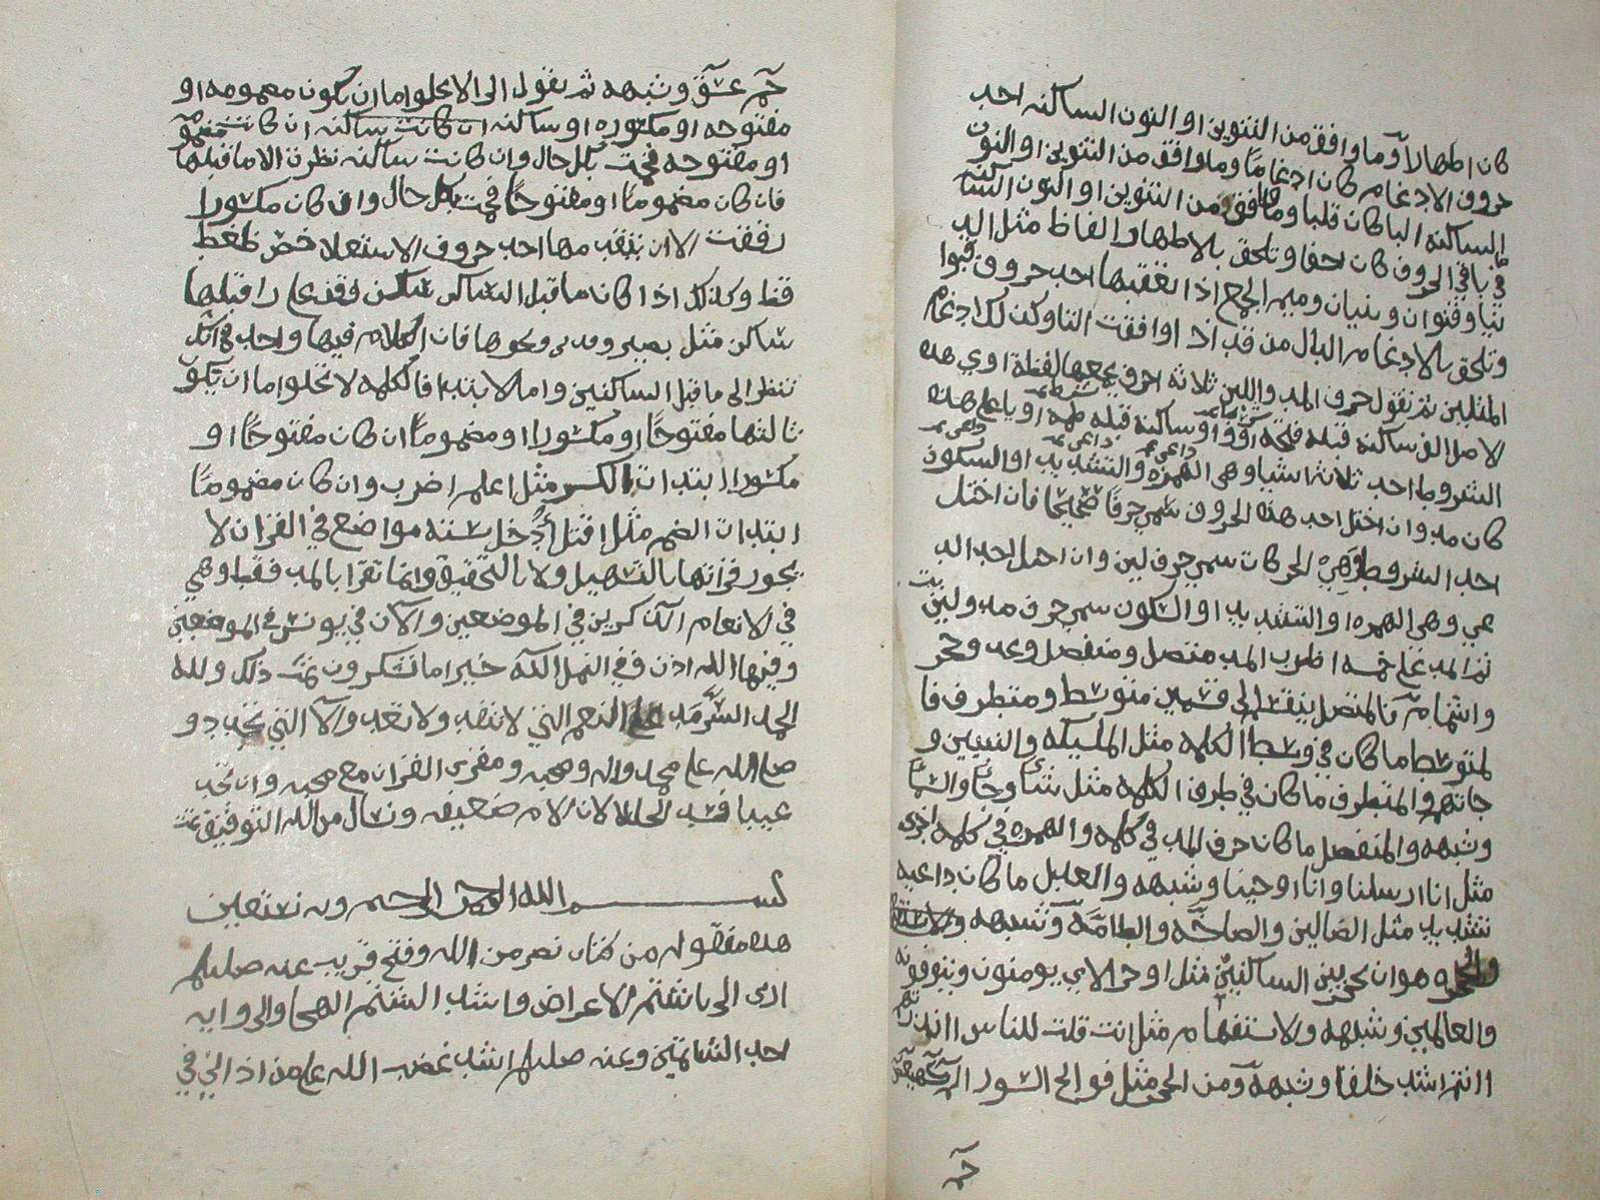 كان اظهارا وما وافق من التنوين او النون الساكنه احد
حروف الادغام كان ادغاما وما وافق من التنوين او النون
الساكنه البا كان قلبا وما وافق من التنوين او النون الساكنه
في باقي الحروف كان اخفا وتلحق بالاظهار الفاظ مثل الد
نيا وقنوان وبنيان وميم الجمع اذا تعقبها احد حروف فبوا
وتلحق بالادغام الدال من قد اذا وافقت التا وكذلك ادغام
المثلين ثم نقول حروف المد واللين ثلاثه احرف يجمعها لفظة اوي هذه
الاصل الف ساكنه قبله فتحه او واو ساكنه قبله ضمه او يا على هذه
الشروط احد ثلاثه اشيا وهي الهمزه والتشديد او السكون
كان مد وان اختل احد هذه الحروف سمي حرفا صحيحا فان اختل
احد الشروط وهي الحركات سمي حرف لين وان اختل احد الد
عي وهي الهمزه او التشديد او السكون سمي حرف مد ولين
ثم المد على خمسه اضرب المد متصل ومنفصل وعد وحجر
واشمام فالمتصل ينقسم الى قسمين متوسط ومتطرف فا
لمتوسط ما كان في وسط الكلمه مثل الملئيكه والنبيين و
جاتهم والمتطرف ما كان في طرف الكلمه مثل شا وجا والسما
وشبهه والمنفصل ما كان حرف المد في كلمه والهمزه في كلمه اخرى
مثل انا ارسلنا وانا اوحينا وشبهه والعدل ما كان داعيه
تشديد مثل الضالين والصاخه والطامه وشبهه
هو ان يحجز بين الساكنين مثل او حر الاي يومنون وينوفون
والعالمين وشبهه والاستفهام مثل انت قلت للناس اانذرتهم
اانتم اشد خلقا وشبهه ومن الحجز مثل فواتح السور الر كهيعص
حم
حم عسق وشبهه ثم نقول الى الا يخلوا ما ان يكون مضمومه او
مفتوحه او مكسوره او ساكنه ان كانت ساكنه ان كانت مضمومه
او مفتوحه فخمت بكل حال وان كانت ساكنه نظرت الا ما قبلها
فان كان مضموما او مفتوحا فخمت بكل حال وان كان مكسورا
رققت الا ان يتقد مها احد حروف الاستعلا خص ضغط
قظ وكذلك اذا كان ما قبل الساكن ساكن فقف على را قبلها
ساكن مثل بصير وقدير ونحوها فان الكلام فيها واحد في انك
تنظر الى ما قبل الساكنين واما الابتدا فالكلمه لا تخلوا اما ان يكون
ثالثها مفتوحا او مكسورا او مضموما ان كان مفتوحا او
مكسورا ابتدات بالكسر مثل اعلم اضرب وان كان مضموما
ابتدات الضم مثل اقتل أدخل سته مواضع في القران لا
يجوز قراتها بالتسهيل ولا بالتحقيق وانما تقرا بالمد فقط وهي
في الانعام الذكرين في الموضعين والآن في يونس في الموضعين
وفيها الله اذن وفي النمل الله خير اما تشركون تمت ذلك ولله
الحمد السرمد على النعم التي لا تنفد ولا تعد والآلا التي تتجدد و
صلى الله على محمد واله وصحبه ومقري القران مع محبه وان تجد
عيبا فسد الخللا لان الام ضعيفه ونسال من الله التوفيق تمت
بسم الله الرحمن الرحيم وبه نستعين
هذه منقوله من كتاب نصر من الله وفتح قريب عنه صلعم
ادى الى باشتم الاعراض واشد الشتم الهجا والراويه
احد الشاتمين وعنه صلعم اشتد غضب الله على من اذاني في